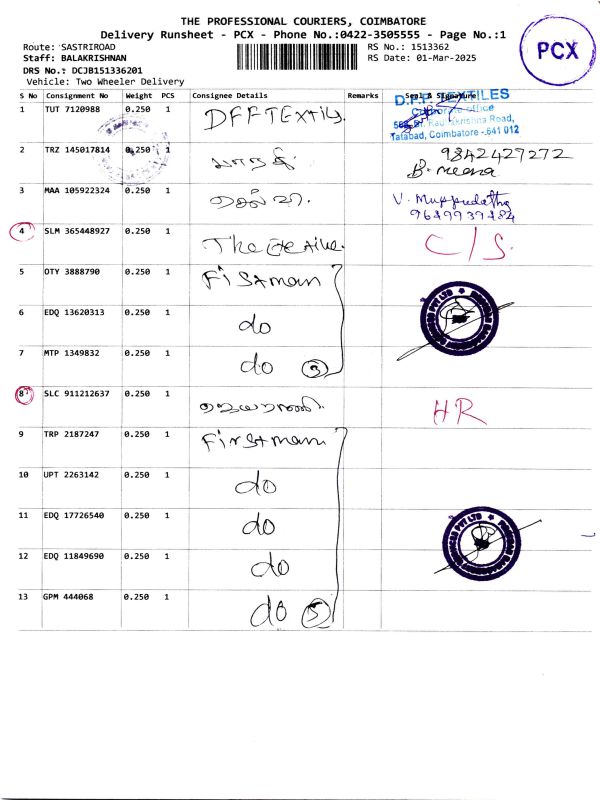 THE PROFESSIONAL COURIERS, COIMBATORE
Delivery Runsheet - PCX - Phone No.:0422-3505555 - Page No.:1
Route: SASTRIROAD RS No.: 1513362
Staff: BALAKRISHNAN RS Date: 01-Mar-2025
DRS No.: DCJB151336201
Vehicle: Two Wheeler Delivery
PCX
S No Consignment No Weight PCS Consignee Details Remarks Seal & Signature
1 TUT 7120988 0.250 1 DFFTExtils. D.F.F. TEXTILES
Corporate Office
Krishna Road,
Tatabad, Coimbatore - 641 012
2 TRZ 145017814 0.250 1 9842427272
B. meena
3 MAA 105922324 0.250 1 செல்வா. V. Muppudathi
4 SLM 365448927 0.250 1 C/S.
5 OTY 3888790 0.250 1 Fistman
6 EDQ 13620313 0.250 1 do
7 MTP 1349832 0.250 1 do 3
8 SLC 911212637 0.250 1 HR
9 TRP 2187247 0.250 1 Firstman
10 UPT 2263142 0.250 1 do
11 EDQ 17726540 0.250 1 do
12 EDQ 11849690 0.250 1 do
13 GPM 444068 0.250 1 do 5